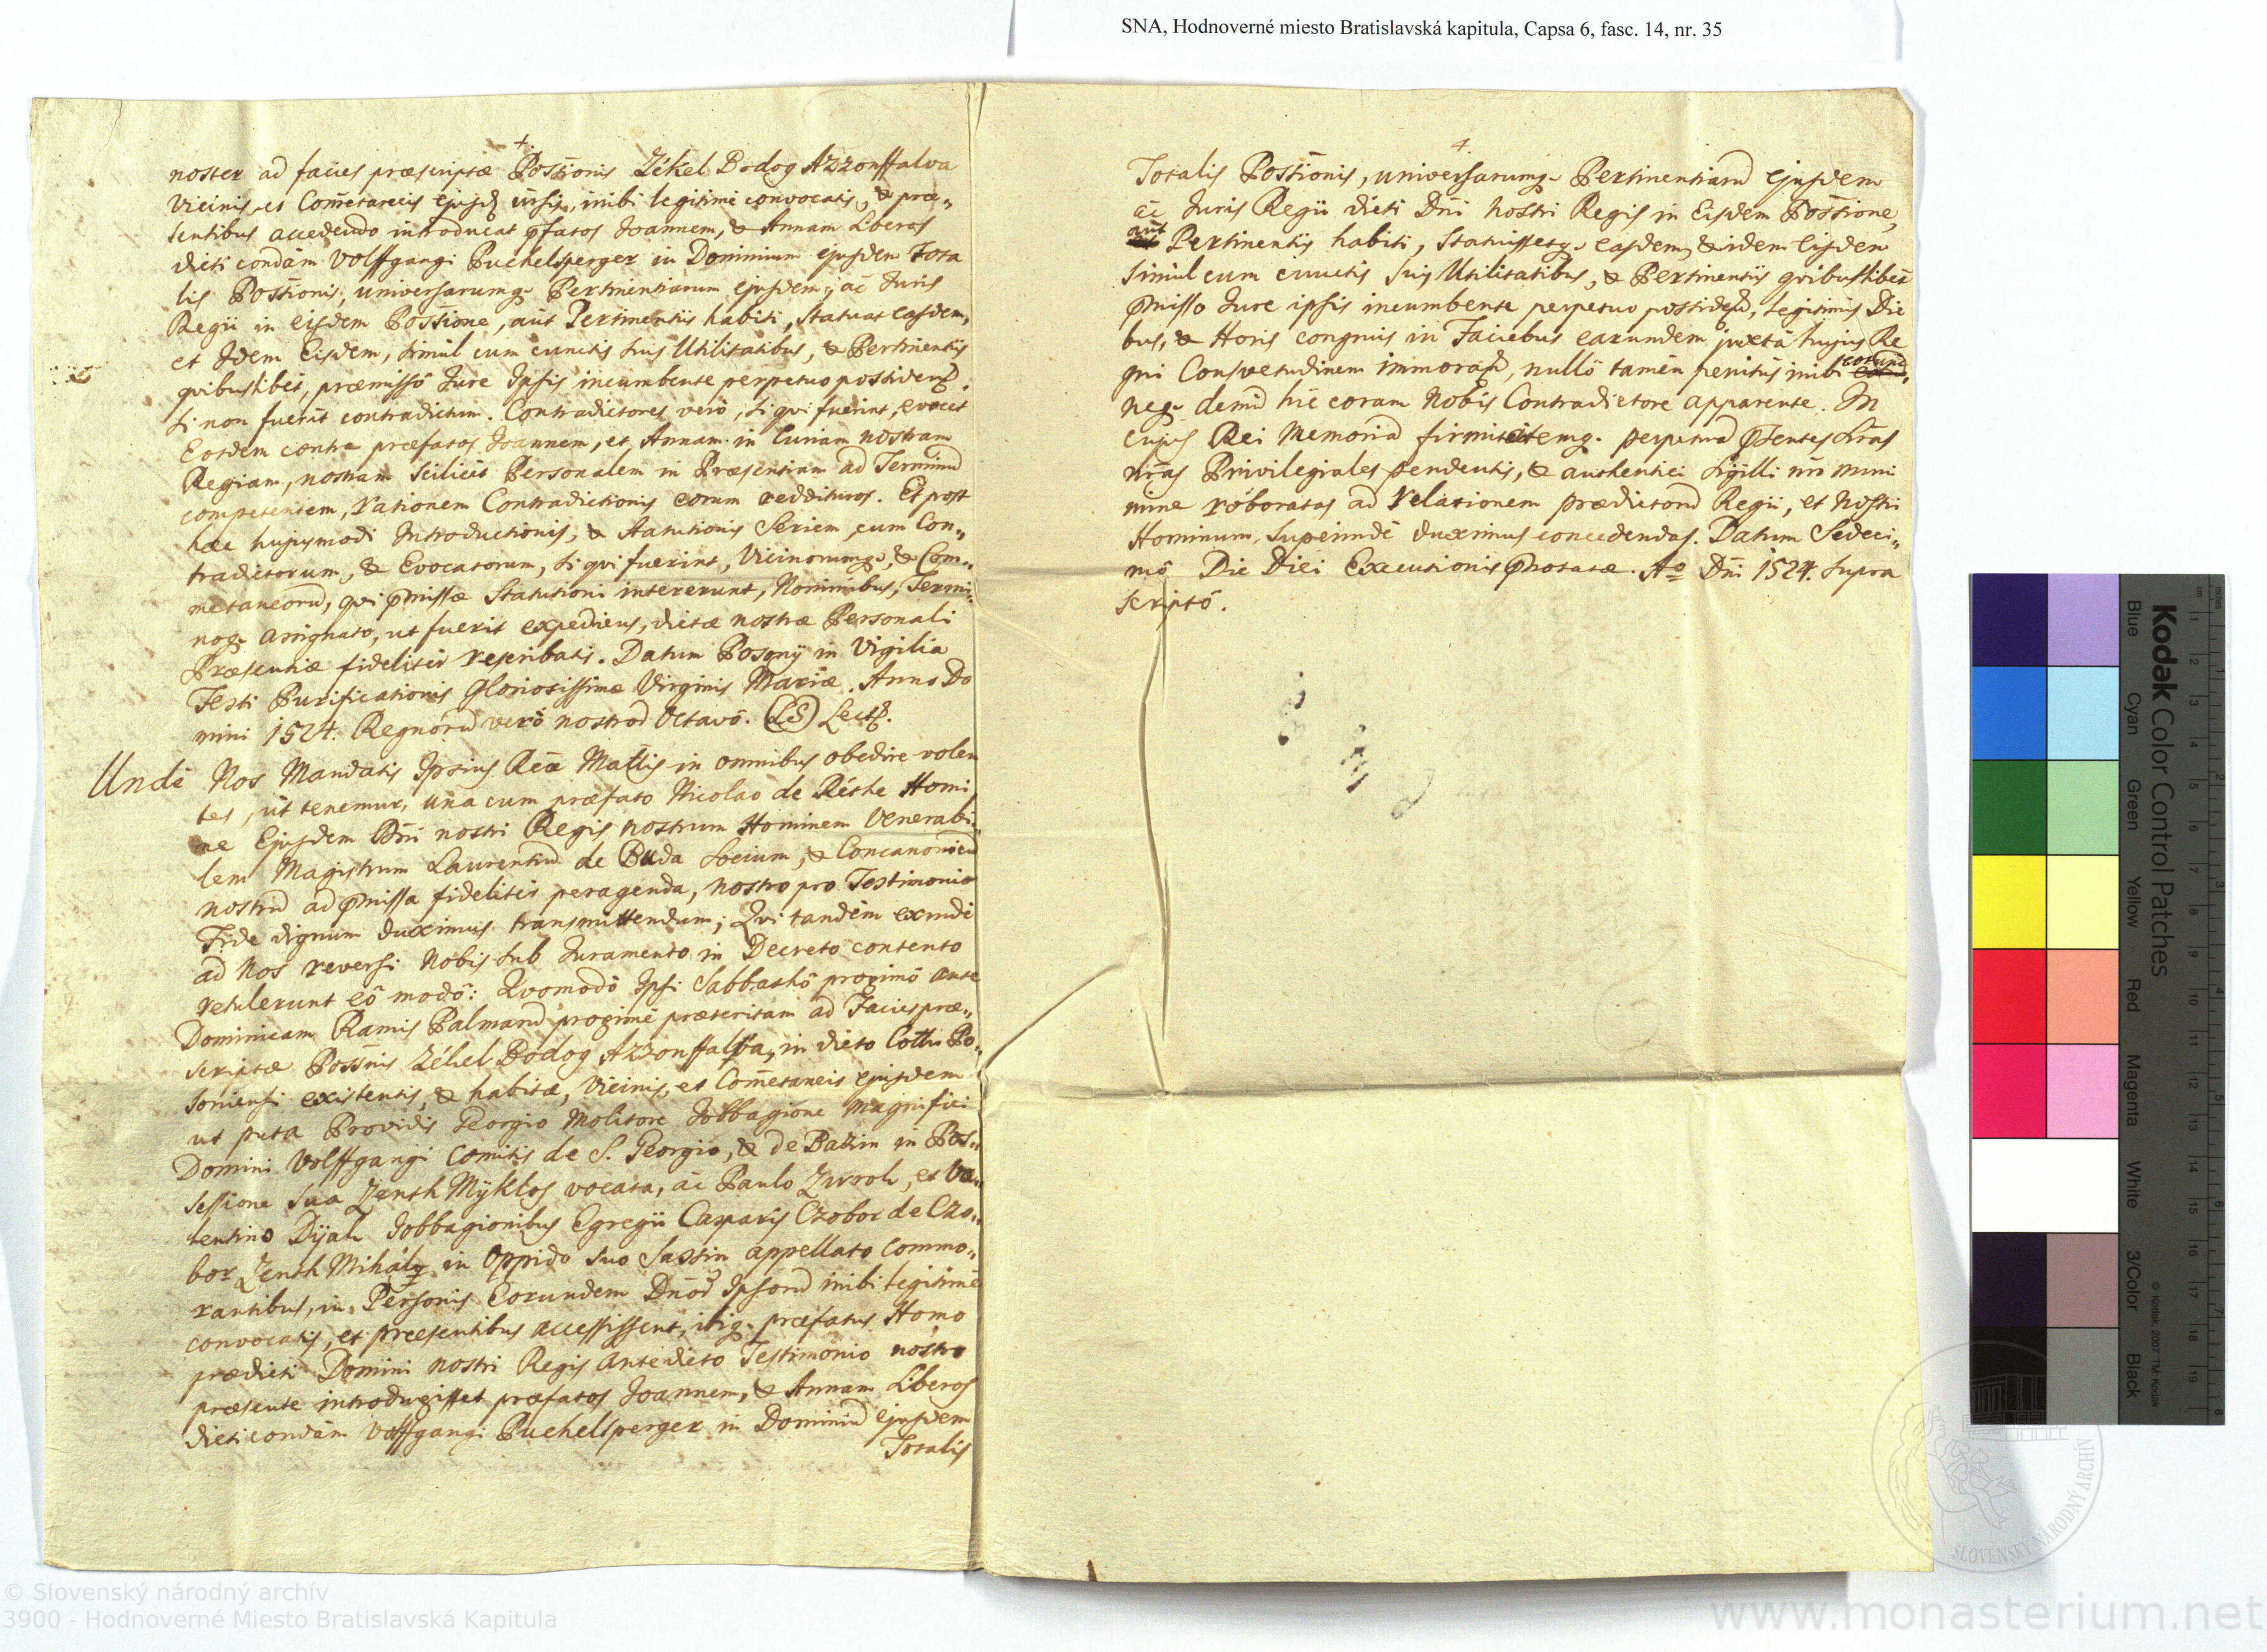 SNA, Hodnoverné miesto Bratislavská kapitula, Capsa 6, fasc. 14, nr. 35
noster ad facies præscriptæ Possionis Zékel Bodog Azzonffalva
Vicinis, et Cometaneis ejusd inibi legitime convocatis, & præ„
sentibus accedendo introducat pfatos Joannem, & Annam Liberos
dicti condam Volffgangi Puchelsperger in Dominium ejusdem Tota
lis Possionis, universarumq. Pertinentiarum ejusdem, ac Juris
Regii in eisdem Possione, aut Pertinentiis habiti, Statuat easdem,
et Idem Eisdem, simul cum cunctis suis Utilitatibus, & Pertinentiis
quibuslibet, præmisso Jure Ipsis incumbente perpetuo possidend.
si non fuerit contradictum. Contradictores vero, si qui fuerint, evocet
Eosdem contra præfatos Joannem, et Annam in Curiam nostram
Regiam, nostram scilicet Personalem in Præsentiam ad Terminu
competentem, rationem Contradictionis eorum reddituros. Et post
hæc hujusmodi Introductionis, & Statutionis Seriem, cum Con„
tradictorum, & Evocatorum, si qui fuerint, Vicinorumq., & Com„
metaneoru, qui pmissæ Statutioni intererunt, Nominibus, Termi„
noq. assignato, ut fuerit expediens, dictæ nostræ Personali
Præsentiæ fideliter rescribatis. Datum Posony in Vigilia
Festi Purificationis Gloriosissimæ Virginis Mariæ. Anno Do
mini 1524. Regnoru vero nostrod Octavo. (LS) Lect.
Unde Nos Mandatis Ipsius Reæ Mattis in omnibus obedire volen
tes, ut tenemur, una cum præfato Nicolao de Réthe Homi
ne Ejusdem Dni nostri Regis nostrum Hominem Venerabi„
lem Magistrum Laurentiu de Buda Socium, & Concanonicu
nostru ad pmissa fideliter peragenda, nostro pro Testimonio
Fide dignum duximus transmittendum; Qui tandem exinde
ad Nos reversi Nobis sub Juramento in Decreto contento
retulerunt eo modo: Quomodo Ipsi Sabbatho proximo ante
Dominicam Ramis Palmaru proxime præteritam ad Facies præ„
scriptæ Possnis Zékel Bodog Azzonffalva, in dicto Cottu Po„
soniensi existentis, & habitæ, Vicinis, et Cometaneis ejusdem
ut puta Providis Georgio Molitore Jobbagione Magnifici
Domini Volffgangi Comitis de S. Georgio, & de Bazin in Pos„
sessione sua Zenth Mÿklos vocata, ac Paulo Zwroh, et Va„
lentino Dijak Jobbagionibus Egregii Casparis Czobor de Czo„
bor Zenth Mihály in Oppido suo Sassin appellato Commo„
rantibus, in Personis Eorundem Dnod Ipsoru inibi legitime
convocatis, et præsentibus accessissent, ibiq. præfatus Homo
prædicti Domini nostri Regis antedicto Testimonio nostro
præsente introduxisset præfatos Joannem, & Annam Liberos
dicti condam Volffgangi Puchelsperger in Dominiu ejusdem
Totalis
4.
Totalis Possionis, universarumq. Pertinentiaru Ejusdem
ac Juris Regii dicti Dni Nostri Regis in Eisdem Possione,
aut Pertinentiis habiti, Statuissetq. easdem, & idem Eisdem
simul cum cunctis suis Utilitatibus, & Pertinentiis quibuslibet
pmisso Jure ipsis incumbente perpetuo possidend, legitimis Die
bus, & Horis congruis in Faciebus earundem juxta hujus Re
gni Consvetudinem immorand, nullo tamen penitus inibi coram,
neq. demu hic coram Nobis Contradictore apparente. In
cujus Rei Memoria firmitatemq. perpetua psentes Lras
nras Privilegiales pendentis, & authentici Sigilli nri muni
mine roboratas ad relationem prædictoru Regii, et Nostri
Hominum, superinde duximus concedendas. Datum Sedeci„
mo Die Diei Executionis pnotatæ. Ao Dni 1524. supra
scripto.
Kodak Color Control Patches
Blue Cyan Green Yellow Red Magenta White 3/Color Black
© Kodak, 2007 TM: Kodak
SLOVENSKÝ NÁRODNÝ ARCHÍV
© Slovenský národný archív
3900 - Hodnoverné Miesto Bratislavská Kapitula
www.monasterium.net